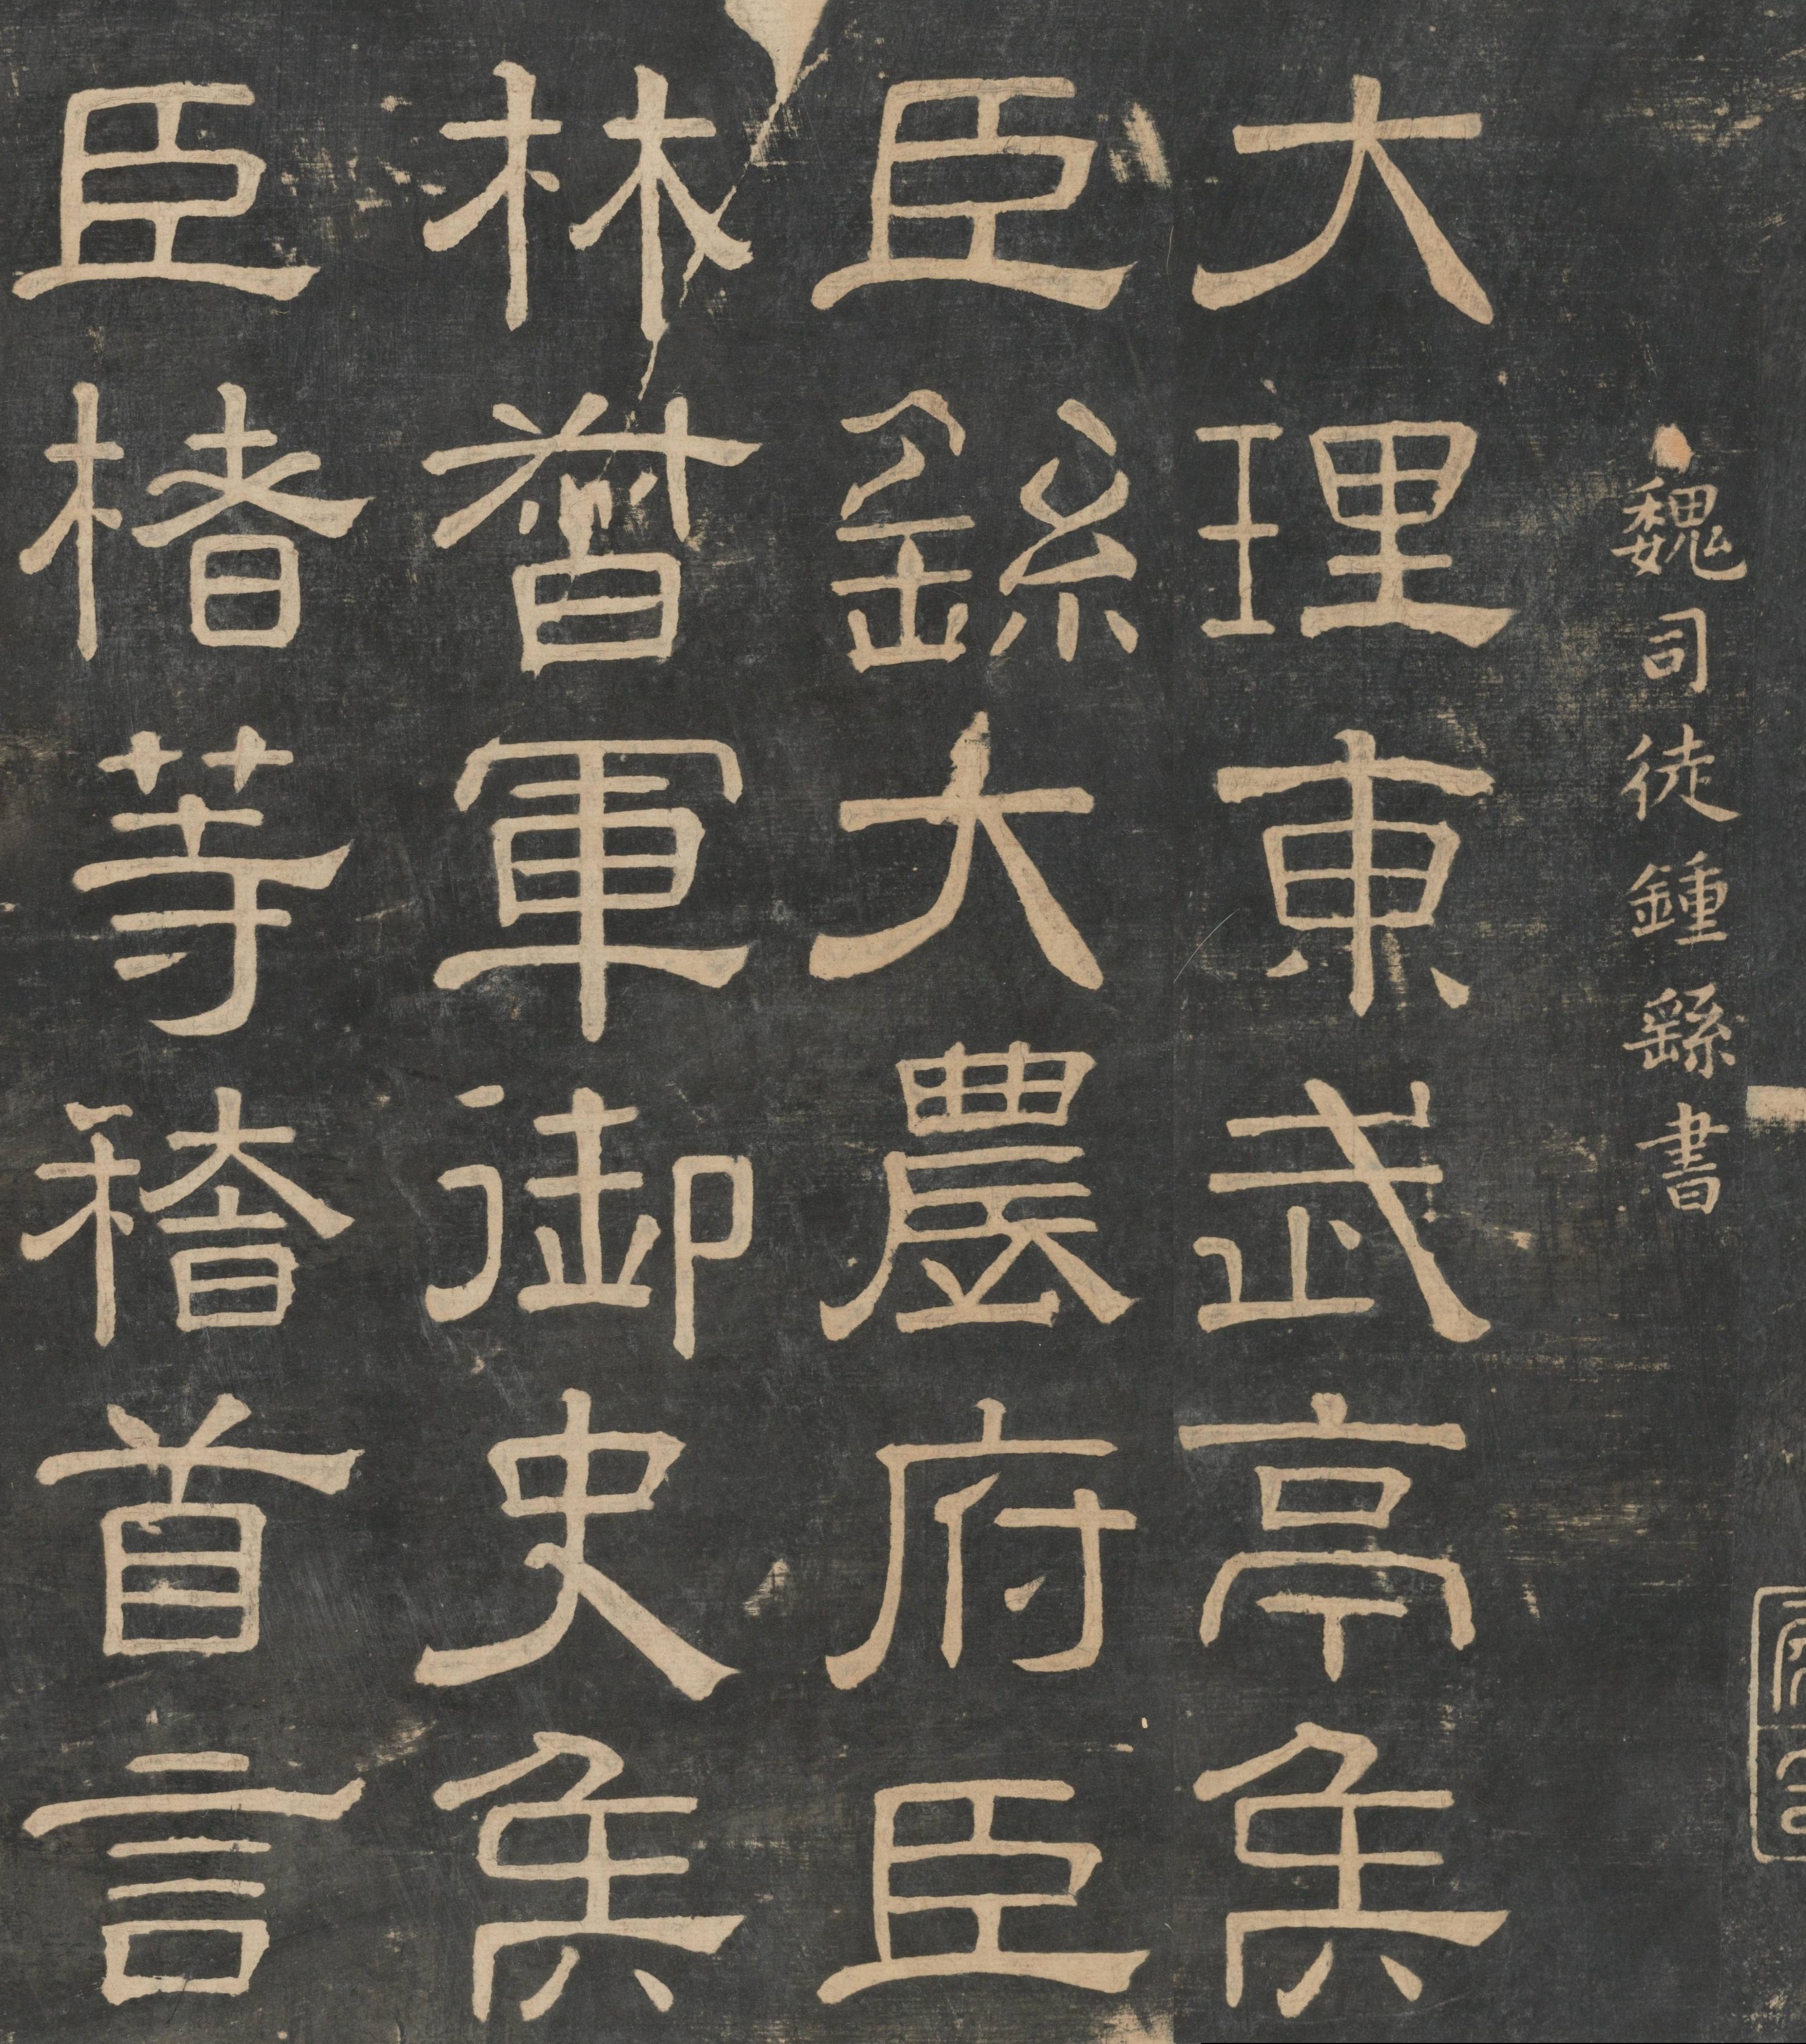 魏司徒鍾繇書
大理東武亭侯
臣繇大農府臣
林督軍御史侯
臣楮等稽首言